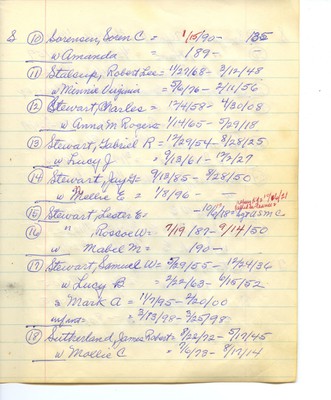 S (10) Sorensen, Soren C = 1/15/90- 135
w Amanda = 189- -
(11) Stalcup, Robert Lee = 1/27/68- 3/12/48
w Minnie Virginia = 5/6/76- 2/11/56
(12) Stewart, Charles = 1/4/58- 4/30/08
w Anna M Rogers = 1/14/65- 5/29/18
(13) Stewart, Gabriel R = 12/29/54- 8/28/25
w Lucy J = 9/13/61- 12/2/27
(14) Stewart, Jay H = 9/13/85- 8/28/50
w Mollie E = 1/8/96 - -
(15) Stewart, Lester E = -10/6/18 = Sgt U.S.M.C.
(16) " Roscoe W = 7/19/87- 9/14/50
w Mabel M = 190- -
(17) Stewart, Samuel W = 5/29/55- 12/24/36
w Lucy B = 2/22/63- 6/15/52
s Mark A = 11/7/95- 2/20/00
infant = 3/13/98- 3/25/98
(18) Sutherland, James Robert = 8/22/72- 5/17/45
w Mollie C = 7/6/73- 8/17/14